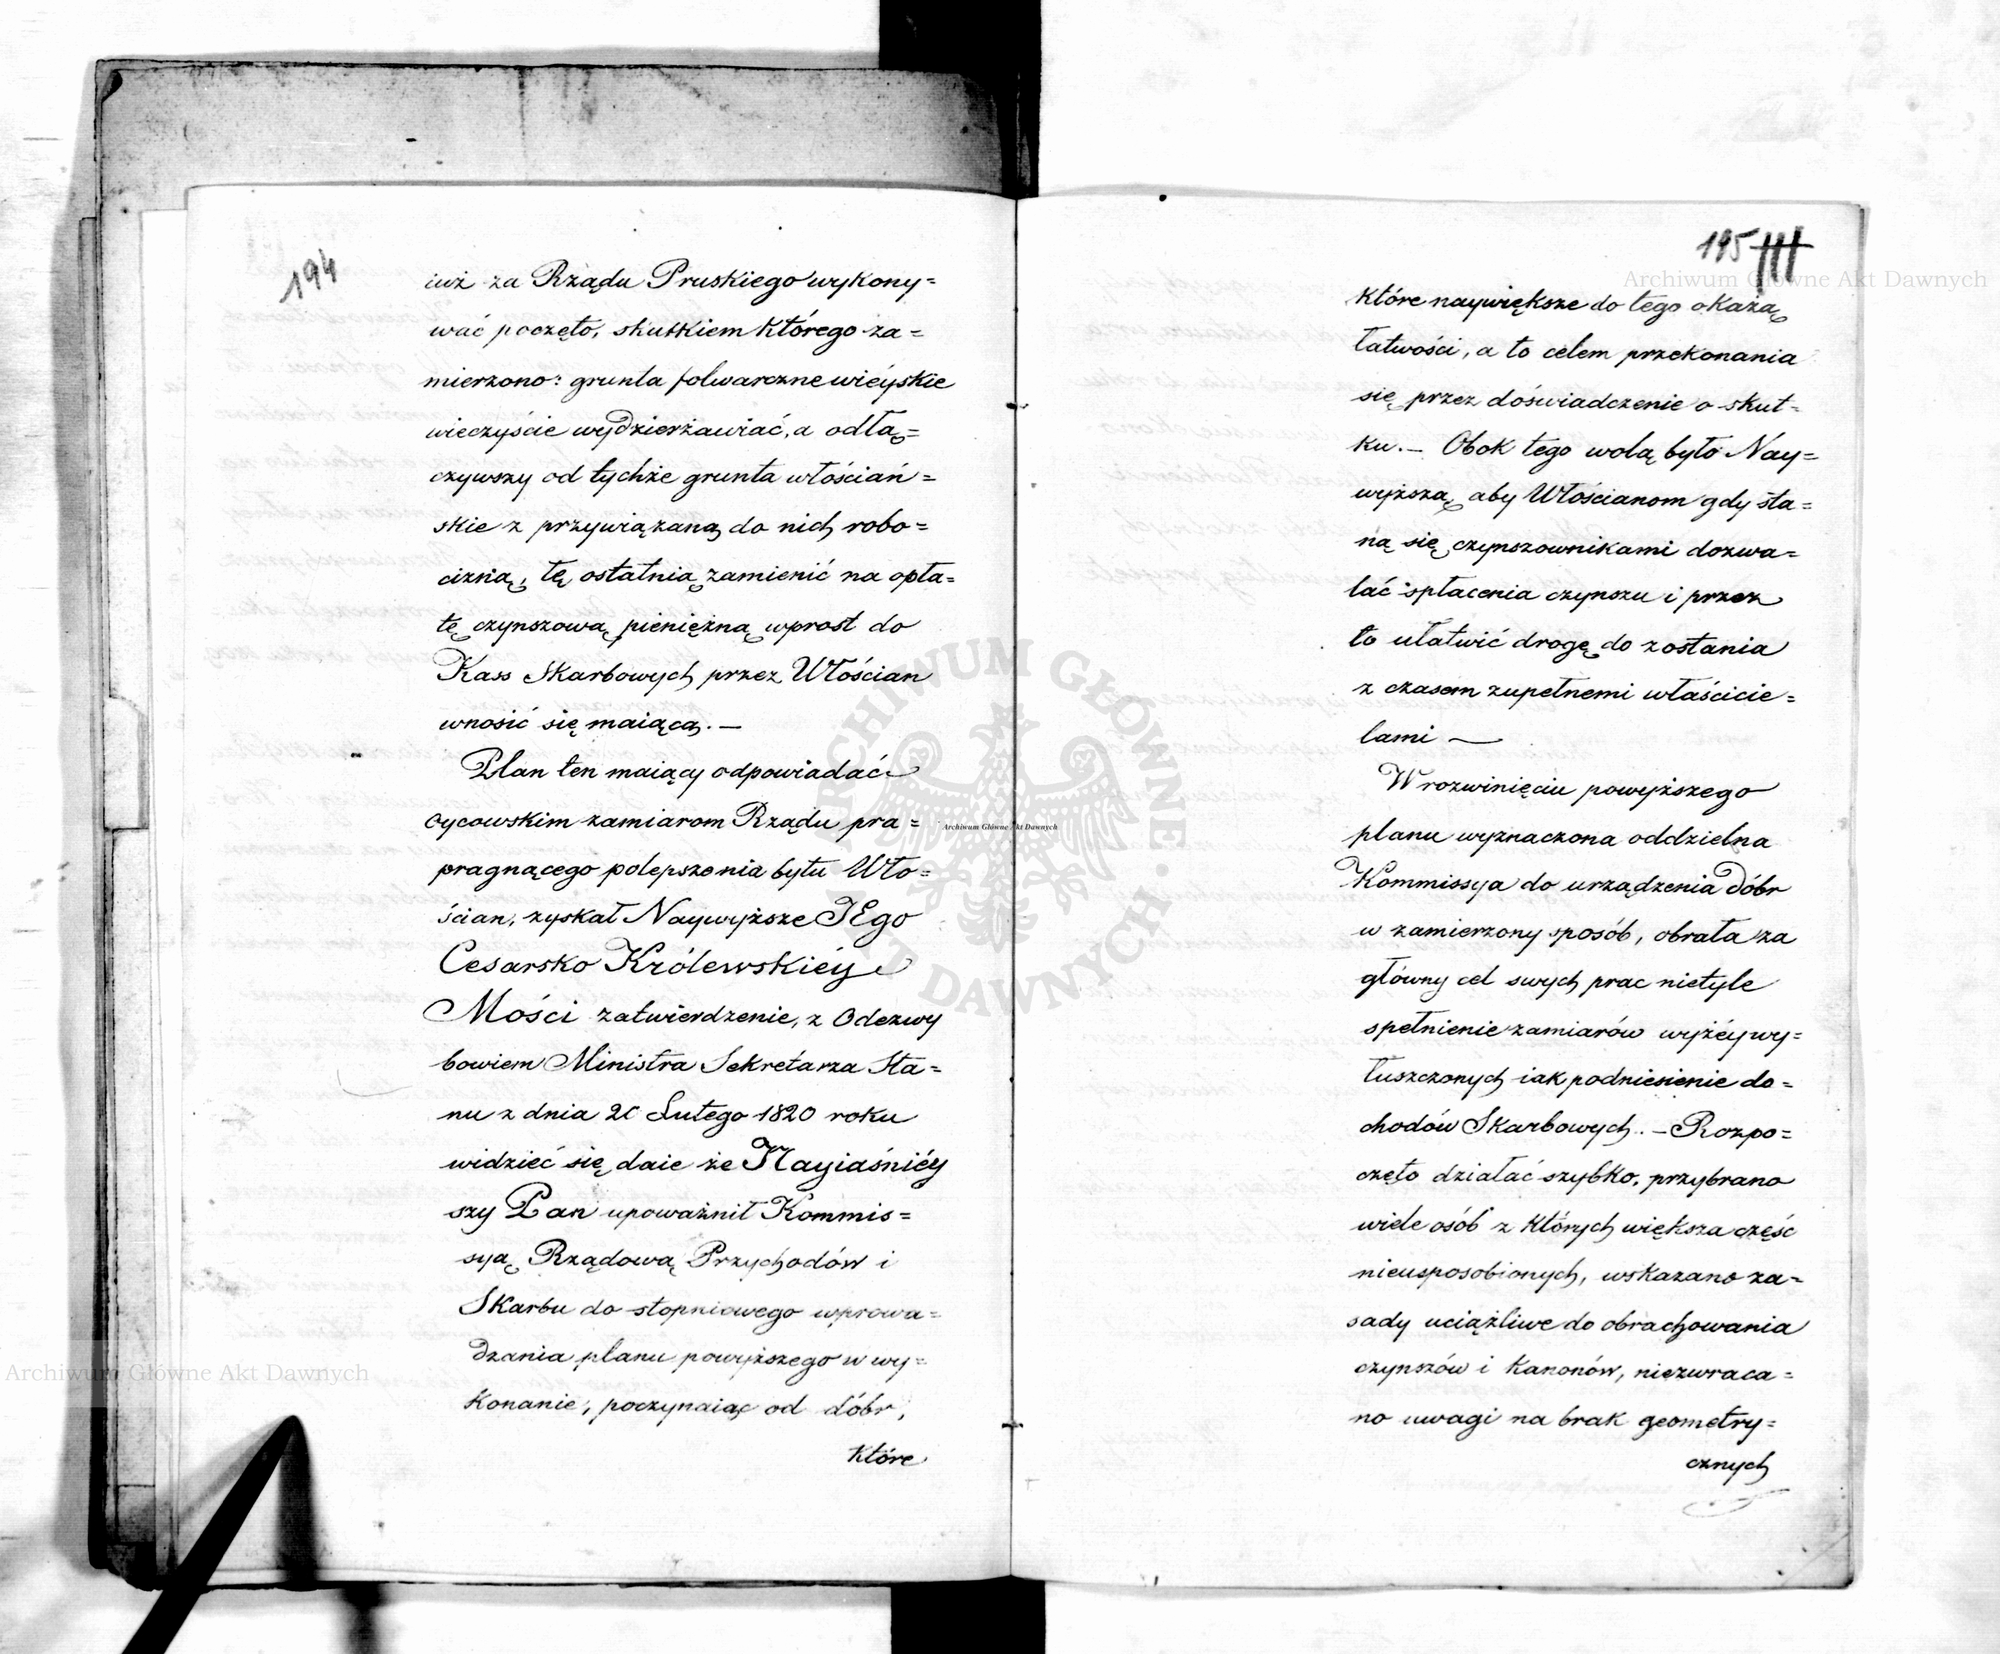 194
iuż za Rządu Pruskiego wykony=
wać poczęto, skutkiem którego za=
mierzono: grunta folwarczne wieyskie
wieczyście wydzierżawiać, a odłą=
czywszy od tychże grunta włościań=
skie z przywiązaną do nich robo=
cizną, tę ostatnią zamienić na opła=
tę czynszową pieniężną wprost do
Kass Skarbowych przez Włościan
wnosić się maiącą. —
Plan ten maiący odpowiadać
oycowskim zamiarom Rządu pra=
pragnącego polepszenia bytu Wło=
ścian, zyskał Naywyższe JEgo
Cesarsko Królewskiéy
Mości zatwierdzenie, z Odezwy
bowiem Ministra Sekretarza Sta=
nu z dnia 20 Lutego 1820 roku
widzieć się daie że Nayiaśniéy
szy Pan upoważnił Kommis=
syą Rządową Przychodów i
Skarbu do stopniowego wprowa=
dzania planu powyższego w wy=
konanie, poczynaiąc od dóbr,
które
195
które naywiększe do tego okażą
łatwości, a to celem przekonania
się przez doświadczenie o skut=
ku. — Obok tego wolą było Nay=
wyższą aby Włościanom gdy sta=
ną się czynszownikami dozwa=
lać spłacenia czynszu i przez
to ułatwić drogę do zostania
z czasem zupełnemi właścicie=
lami —
W rozwinięciu powyższego
planu wyznaczona oddzielna
Kommissya do urządzenia dóbr
w zamierzony sposób, obrała za
główny cel swych prac nietyle
spełnienie zamiarów wyżéy wy=
łuszczonych iak podniesienie do=
chodów Skarbowych. — Rozpo=
częto działać szybko, przybrano
wiele osób z których większa część
nieusposobionych, wskazano za=
sady uciążliwe do obrachowania
czynszów i kanonów, niezwraca=
no uwagi na brak geometry=
cznych
Archiwum Główne Akt Dawnych
Archiwum Główne Akt Dawnych
Archiwum Główne Akt Dawnych
ARCHIWUM GŁÓWNE AKT DAWNYCH